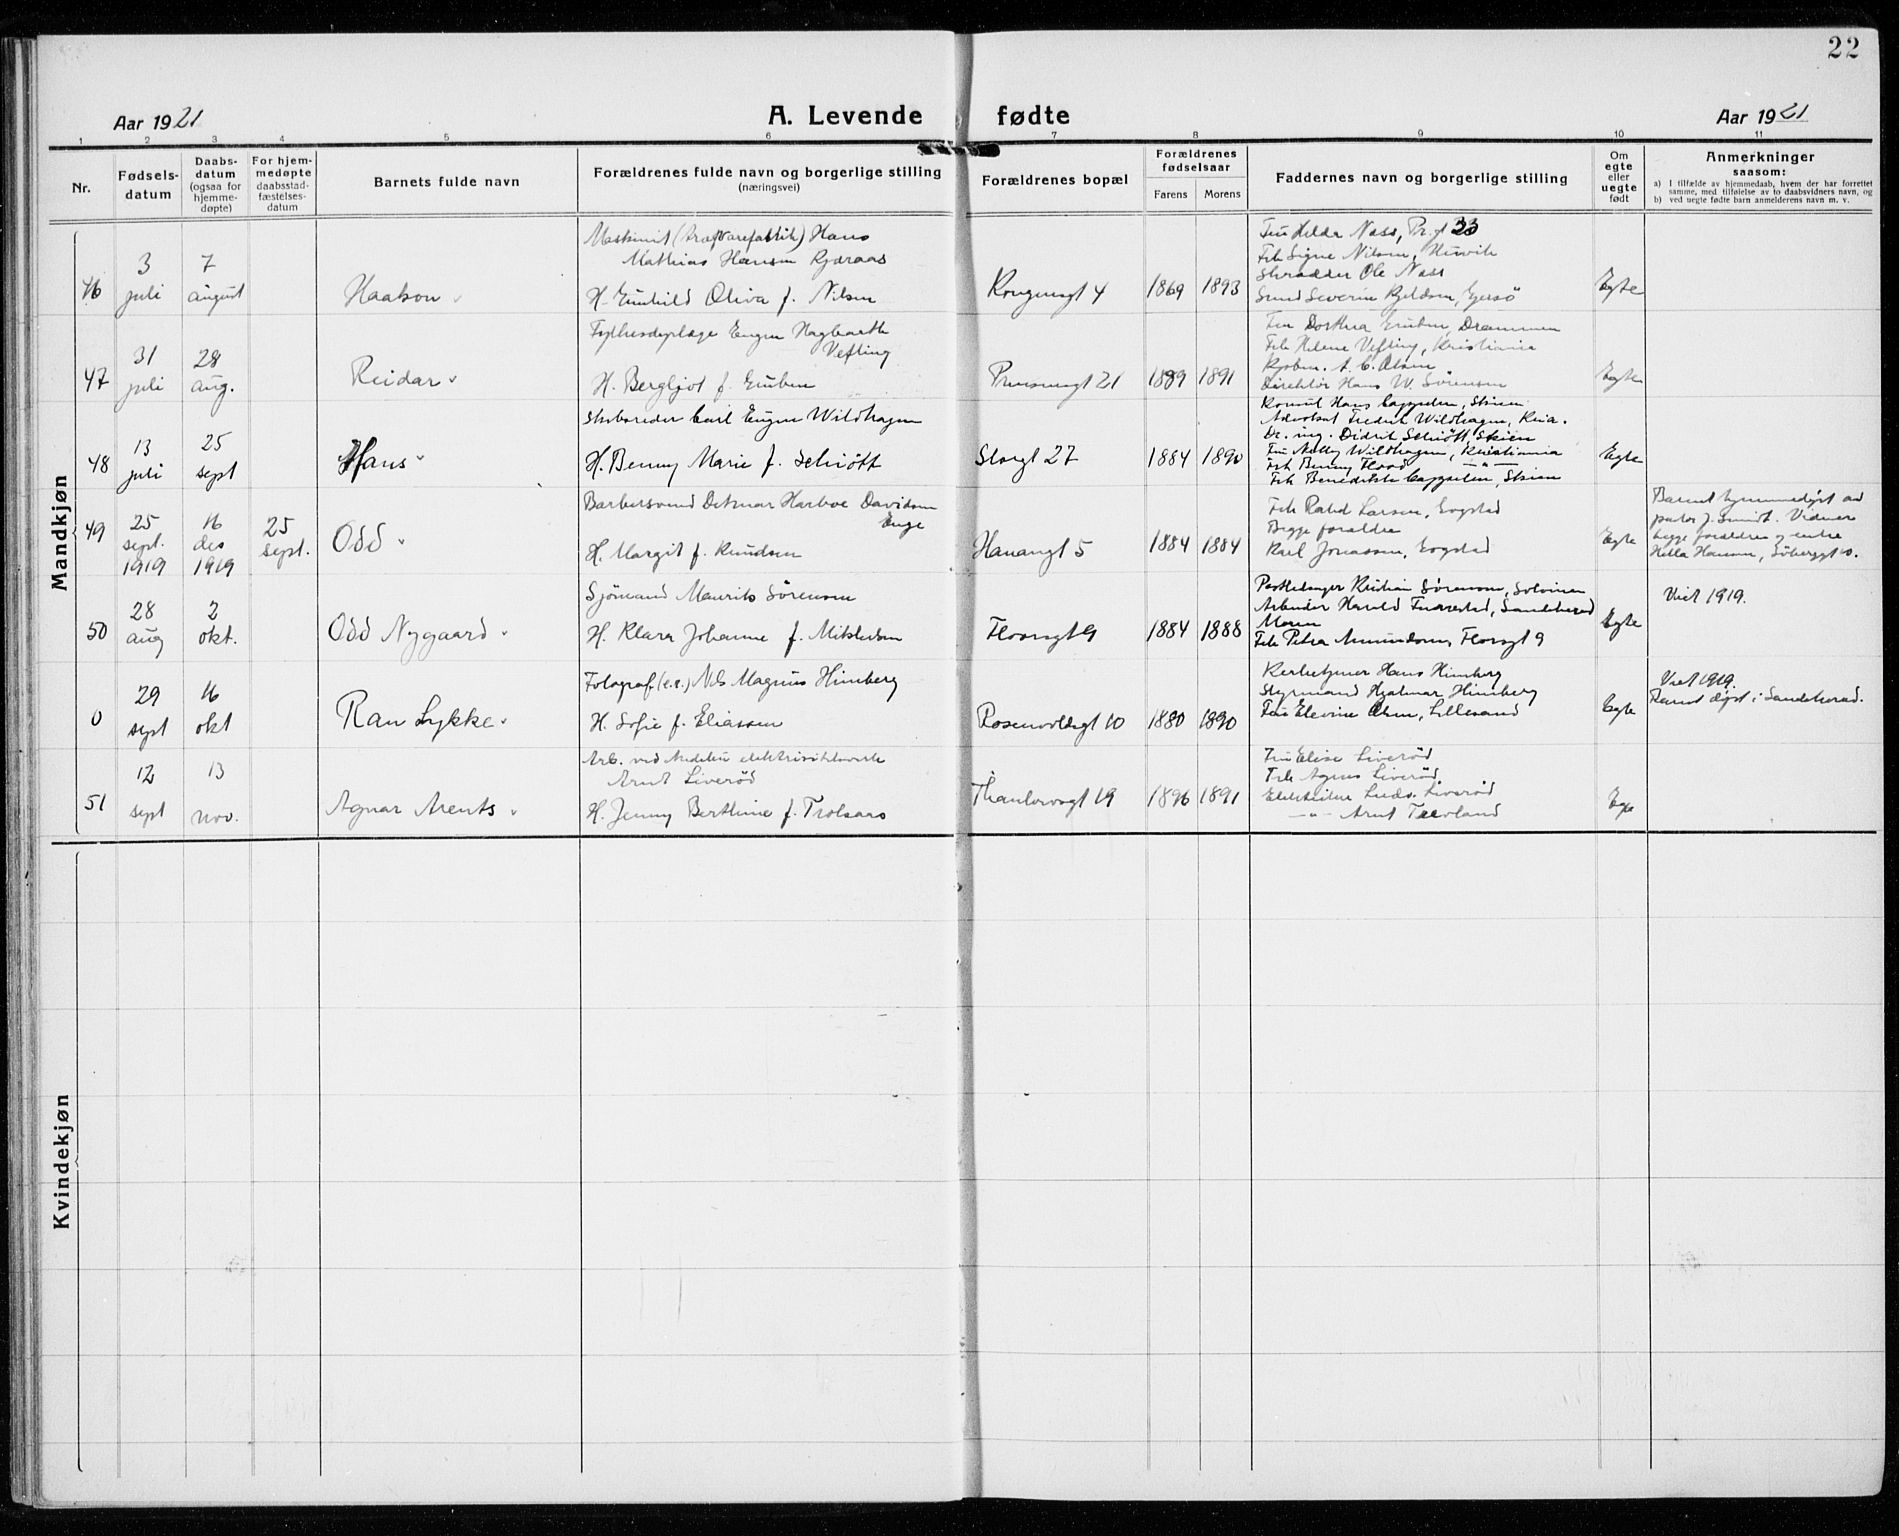 22
Aar 1921
A. Levende fødte
Aar 1921
1 2 3 4 5 6 7 8 9 10 11
Nr.
Fødsels-
datum
Daabs-
datum
(ogsaa for
hjemme-
døpte)
For hjem-
medøpte
daabsstad-
fæstelses-
datum
Barnets fulde navn
Forældrenes fulde navn og borgerlige stilling
(næringsvei)
Forældrenes bopæl
Forældrenes
fødselsaar
Farens Morens
Faddernes navn og borgerlige stilling
Om
egte
eller
uegte
født
Anmerkninger
saasom:
a) I tilfælde av hjemmedaab, hvem der har forrettet
samme, med tilføielse av to daabsvidners navn, og
b) ved uegte fødte barn anmelderens navn m. v.
Mandkjøn
46
3
juli
7
august
Haakon
Maskinist Hans
Mathias Hansen Kjæraas
H. Gunhild Oliva f. Nilsen
Kongensgt 4
1869 1893
Fru Hilda Næss, Pr.gt 33
Frk Signe Nilsen
Skrædder Ole Næss
Severin Kjeldsen
Egte
47
31
juli
28
aug.
Reidar
Eugen Hagbarth
Vefting
H. Bergljot f. Gruben
Prinsensgt 21
1889 1891
Fru Dorthea Gruben, Drammen
Frk Helene Vefting, Kristiania
Kjøbm. A. C. Olsen
Direktør Hans W. Sørensen
Egte
48
13
juli
25
sept
Hans
Skibsreder Carl Eugen Wildhagen
H. Benny Marie f. Schiøtt
Storgt 27
1884 1890
Konsul Hans Cappelen, Skien
Advokat Fredrik Wildhagen, Kria.
Dr. ing. Didrik Schiøtt, Skien
Fru Nelly Wildhagen, Kristiania
Frk Benny Flood —"—
Frk Benedikte Cappelen, Skien
Egte
49
25
sept.
1919
16
des
1919
25
sept.
Odd
Barbersvend Detmar Harboe Davidsen
Enge
H. Margit f. Knudsen
Havnagt 5
1884 1884
Frk Larsen, Bogstad
Begge forældre
Karl Jonassen, Bogstad
Egte
Barnet hjemmedøpt av
pastor J. Smidt. Vidner
begge forældre og enke
Hella Hansen
50
28
aug
2
okt.
Odd Nygaard
Sjømand Maurits Sørensen
H. Klara Johanne f. Mikkelsen
Floorsgt 9
1884 1888
Kristian Sørensen
Arbeider Harold, Sandeherred
Moren
Frk Petra Amundsen, Floorsgt 9
Egte
Viet 1919.
0
29
sept
16
okt
Ran Lykke
Fotograf Nils Magnus Himberg
H. Sofie f. Eliassen
Rosenvoldsgt 10
1880 1890
Hans Himberg
Styrmand Hjalmar Himberg
Fru Elevine Olsen, Lillesand
Egte
Viet 1919.
Barnet døpt i Sandeherred.
51
12
sept
13
nov.
Agnar Arents
Arb. ved elektricitetsverk
Arnt Liverød
H. Jenny Berthine f. Trolsaas
Thaulowsgt 19
1896 1891
Fru Elise Liverød
Frk Agnes Liverød
Ludv. Liverød
—"— Arnt
Egte
Kvindekjøn